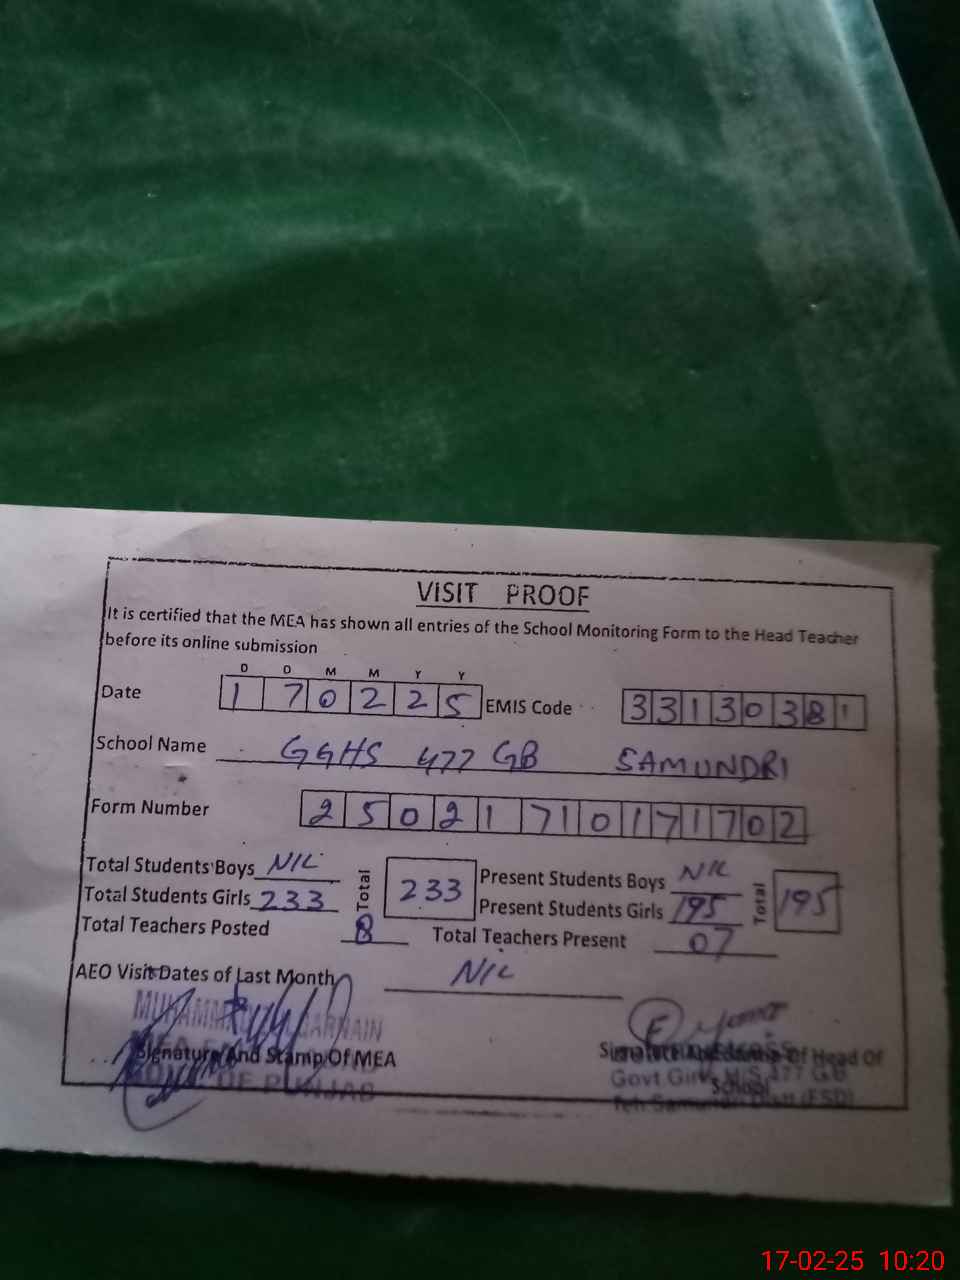 VISIT PROOF
It is certified that the MEA has shown all entries of the School Monitoring Form to the Head Teacher
before its online submission
D D M M Y Y
Date 1 7 0 2 2 5 EMIS Code 3 3 1 3 0 3 8 1
School Name GGHS 477 GB SAMUNDRI
Form Number 2 5 0 2 1 7 1 0 1 7 1 7 0 2
Total Students Boys NIL Total 233 Present Students Boys NIL Total 195
Total Students Girls 233 Present Students Girls 195
Total Teachers Posted 8 Total Teachers Present 07
AEO Visit Dates of Last Month NIL
MUHAMMAD
Signature And Stamp Of MEA Of Head Of
OF PUNJAB Govt Girls 477 G.B
School
(FSD)
17-02-25 10:20